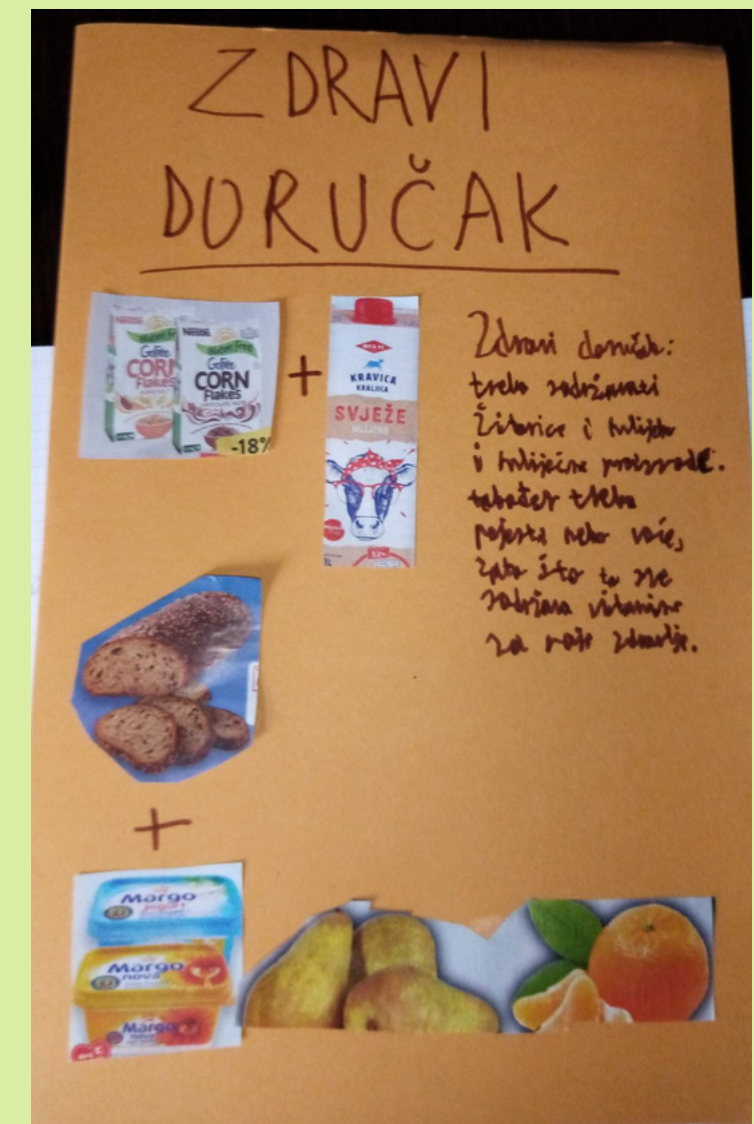 ZDRAVI
DORUČAK
Nestlé
Gluten Free
GoFree
CORN
Flakes
Nestlé
Gluten Free
GoFree
CORN
Flakes
-18%
+
KRAVICA
KRALJICA
SVJEŽE
MLIJEKO
3,2%
1L
Zdravi doručak:
treba sadržavati
žitarice i mlijeko
i mliječne proizvode.
također treba
pojesti neko voće,
zato što to sve
sadržava vitamine
za naše zdravlje.
+
Margo
jogurt
Margo
nova
Margo